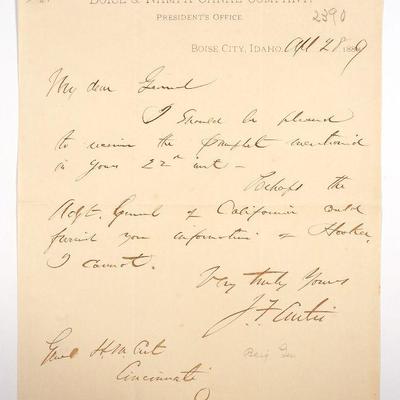 BOISE & NAMPA CANAL COMPANY.
PRESIDENT'S OFFICE.
2390
BOISE CITY, IDAHO, Apl 28 1889
My dear General
I should be pleased
to receive the pamplet mentioned
in yours 22nd inst -
Perhaps the
Adjt. General of California could
furnish you information of Hooker,
I cannot.
Very truly Yours
J F Curtis
Genl H. M. Cist
Cincinnati
Brig Gen